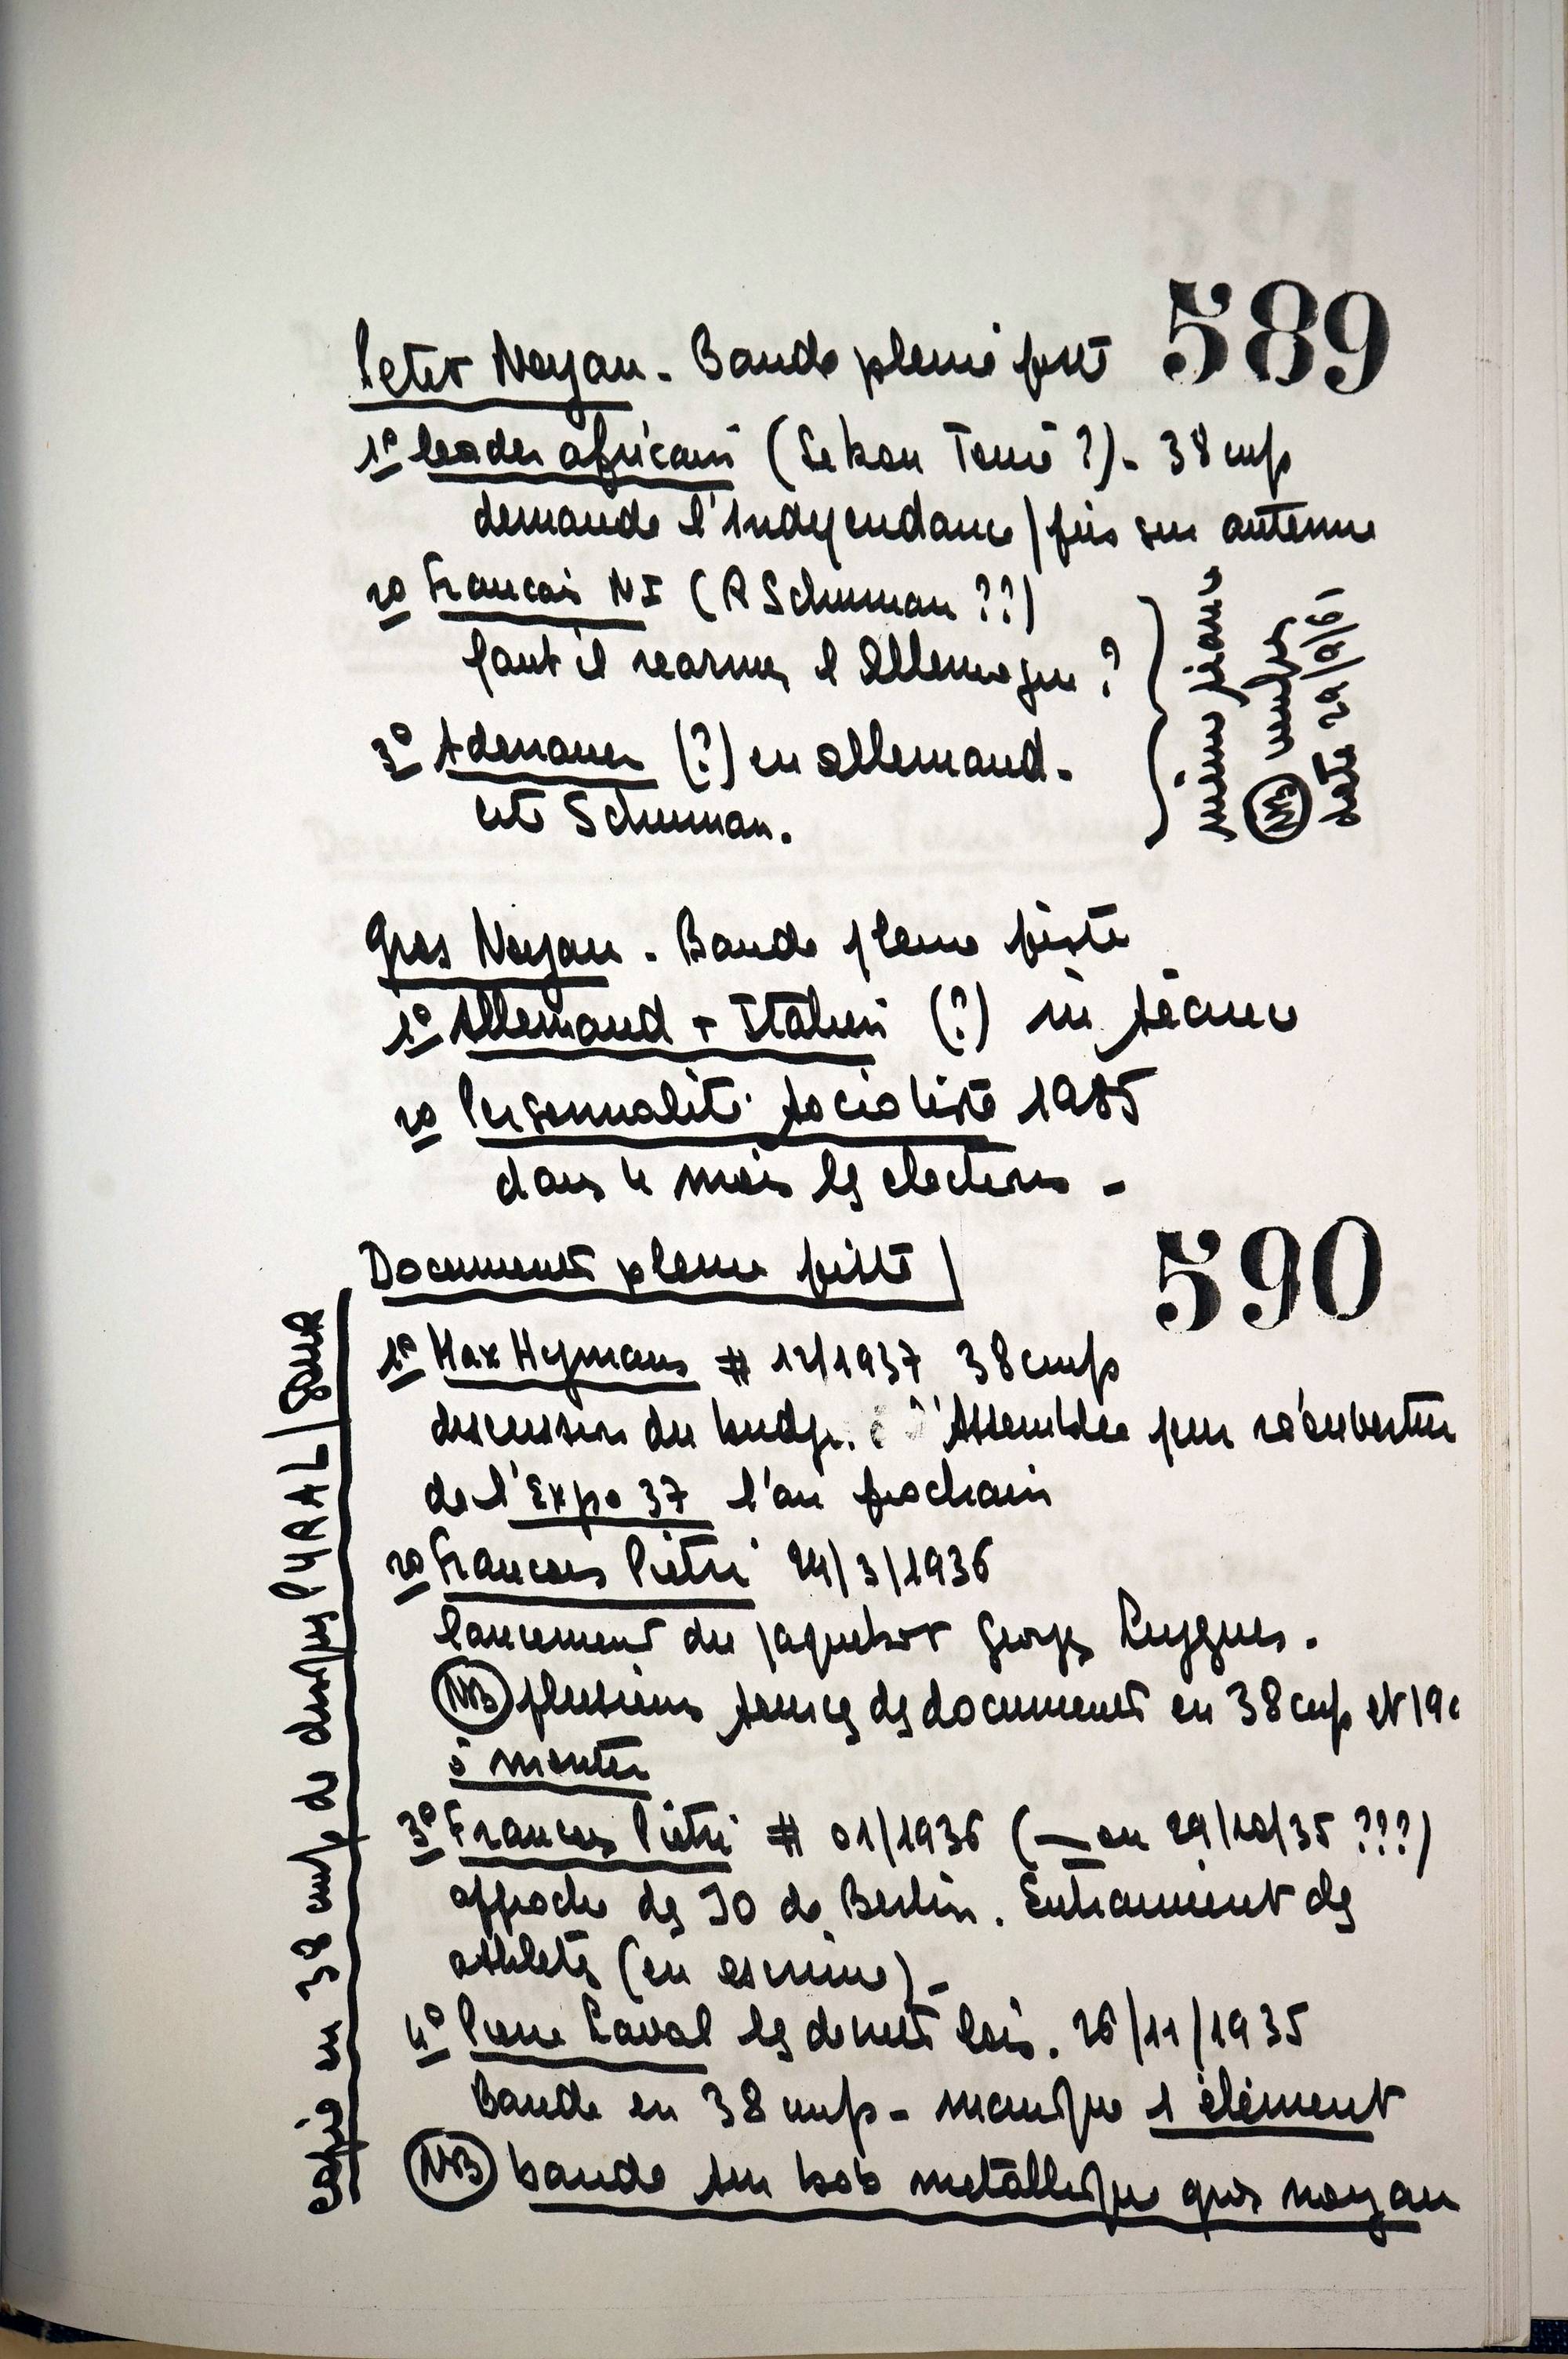 589
Petit Noyau. Bande pleine piste
1º leader africain (Sekou Touré ?) - 38 cmps
demande l'indépendance / puis sur antenne
2º Francais NI (R Schuman ??)
faut il rearmer l'Allemagne ?
3º Adenauer (?) en allemand -
cite Schuman.
même séance
NB
date 29/9/61
Gros Noyau. Bande pleine piste
1º Allemand + Italien (?) in séance
2º Personnalité socialiste 1985
dans 4 mois les elections -
590
Documents pleine piste
1º Max Hymans # 12/1937 38 cmps
discussion du budge. l'Assemblée pour réouverture
de l'Expo 37 l'an prochain
2º Francois Pietri 24/3/1936
lancement du paquebot Georges Leygues.
NB plusieurs series de documents en 38 cmps et 19
à monter
3º Francois Pietri # 01/1936 (— ou 29/10/35 ???)
approche des JO de Berlin. Entrainement des
athletes (en escrime) -
4º Pierre Laval les decrets lois. 26/11/1935
Bande en 38 cmps - manque 1 élément
NB bande sur bob metallique gros noyau
copie en 38 cmps de disques PYRAL /